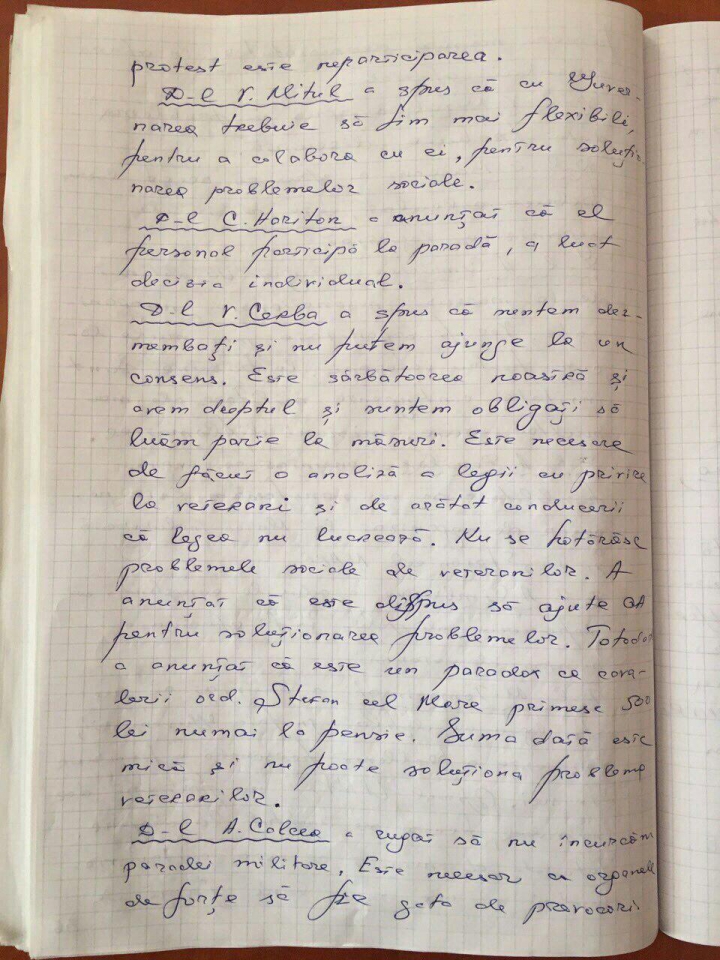 protest este neparticiparea.
D-l V. Mitul a spus că cu Guver-
narea trebuie să fim mai flexibili,
pentru a colabora cu ei, pentru soluțio-
narea problemelor sociale.
D-l C. Hariton a anunțat că el
personal participă la paradă, a luat
decizia individual.
D-l V. Cerba a spus că suntem dez-
membați și nu putem ajunge la un
consens. Este sărbătoarea noastră și
avem dreptul și suntem obligați să
luăm parte la măsuri. Este necesare
de făcut o analiză a legii cu privire
la veterani și de arătat conducerii
că legea nu lucrează. Nu se hotărăsc
problemele sociale ale veteranilor. A
anunțat că este dispus să ajute
pentru soluționarea problemelor. Totodat
a anunțat că este un paradox ca cava-
lerii ord. Ștefan cel Mare primesc 500
lei numai la pensie. Suma dată este
mică și nu poate soluționa problema
veteranilor.
D-l A. Calcea a rugat să nu încurcăm
paradei militare. Este necesar ca organele
de forțe să fie gata de provocări.